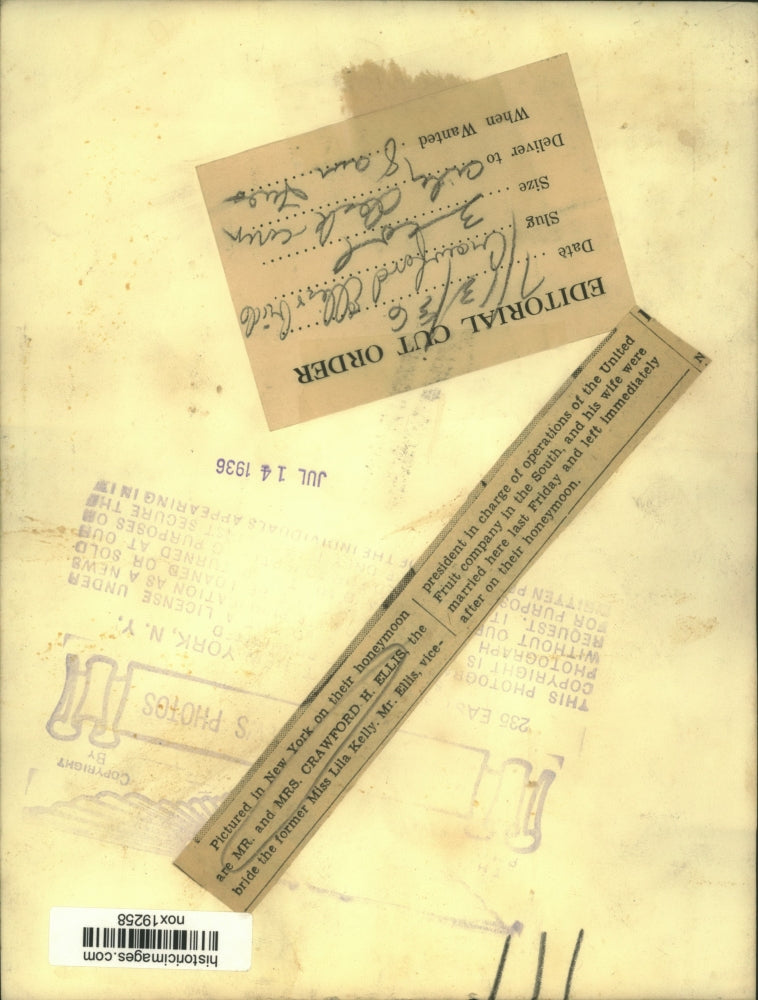 EDITORIAL CUT ORDER
Date 7/13/36
Slug Crawford Ellis
Size 3
Deliver to
When Wanted 8 am
Pictured in New York on their honeymoon
are MR. and MRS. CRAWFORD H. ELLIS, the
bride the former Miss Lila Kelly. Mr. Ellis, vice-
president in charge of operations of the United
Fruit company in the South, and his wife were
married here last Friday and left immediately
after on their honeymoon.
JUL 14 1936
COPYRIGHT
BY
S PHOTOS
235 EA
YORK, N. Y.
THIS PHOTOG
COPYRIGHT IS
PHOTOGRAPH
WITHOUT OUR
REQUEST IT
FOR PURPOS
LICENSE UNDER
ATION AS A NEWS
OR SOLD
AT OUR
PURPOSES OR
SECURE THE
OF THE INDIVIDUALS APPEARING IN IT
historicimages.com
nox19258